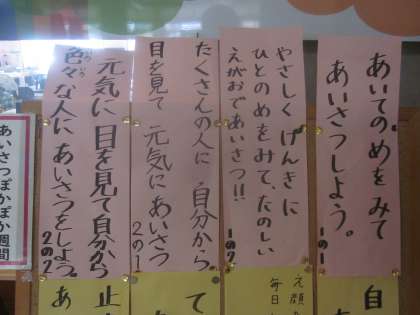 あいてのめをみて
あいさつしよう。
1の1
やさしく げんきに
ひとのめをみて、たのしい
えがおであいさつ!!
1の2
たくさんの人に 自分から
目を見て 元気にあいさつ
2の1
元気に 目を見て自分から
色々な人に あいさつをしよう。
いろいろ
2の2
あいさつぽかぽか週間
自
あ
え顔
毎日
て
止
あ